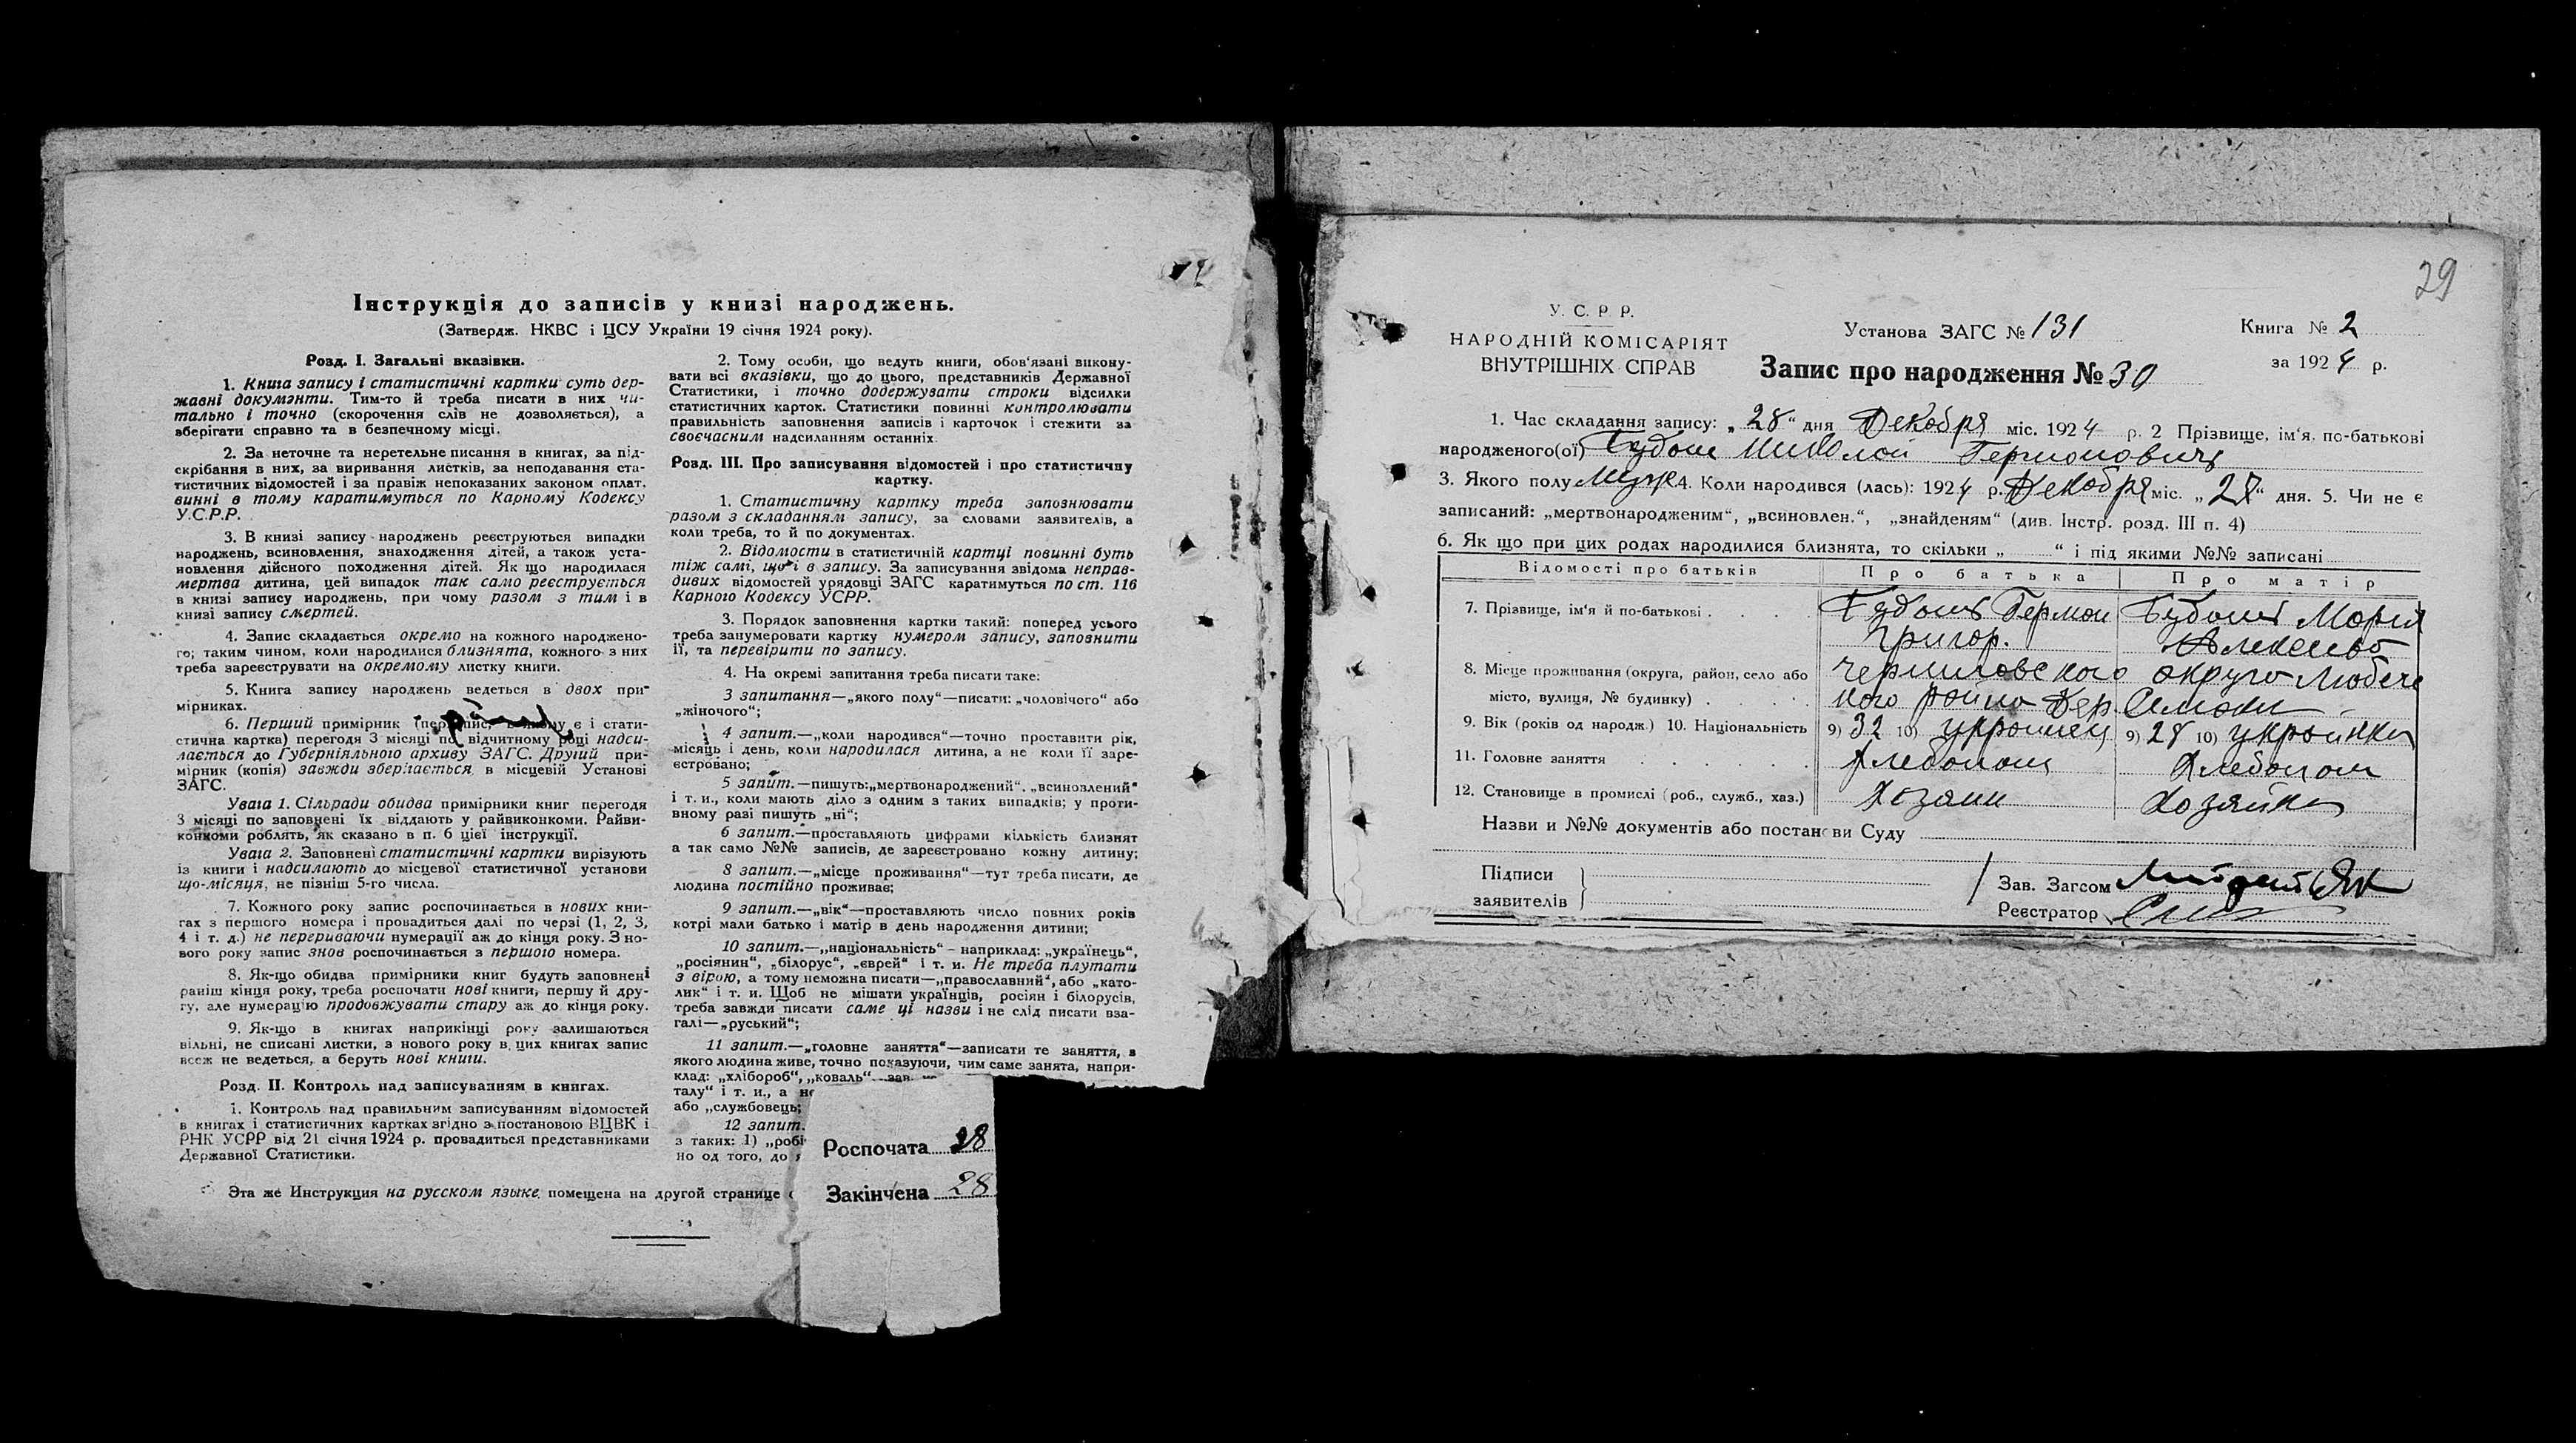 Інструкція до записів у книзі народжень.
(Затвердж. НКВС і ЦСУ України 19 січня 1924 року).
Розд. I. Загальні вказівки.
1. Книга запису і статистичні картки суть дер-
жавні документи. Тим-то й треба писати в них чи-
тально і точно (скорочення слів не дозволяється), а
зберігати справно та в безпечному місці.
2. За неточне та неретельне писання в книгах, за під-
скрібання в них, за виривання листків, за неподавання ста-
тистичних відомостей і за правіж непоказаних законом оплат,
винні в тому каратимуться по Карному Кодексу
У.С.Р.Р.
3. В книзі запису народжень реєструються випадки
народжень, всиновлення, знаходження дітей, а також уста-
новлення дійсного походження дітей. Як що народилася
мертва дитина, цей випадок так само реєструється
в книзі запису народжень, при чому разом з тим і в
книзі запису смертей.
4. Запис складається окремо на кожного народжено-
го; таким чином, коли народилися близнята, кожного з них
треба зареєструвати на окремому листку книги.
5. Книга запису народжень ведеться в двох при-
мірниках.
6. Перший примірник є і стати-
стична картка) перегодя 3 місяці по відчитному році надси-
лається до Губерніяльного архиву ЗАГС. Другий при-
мірник (копія) завжди зберігається в місцевій Установі
ЗАГС.
Увага 1. Сільради обидва примірники книг перегодя
3 місяці по заповнені їх віддають у райвиконкоми. Райви-
конкоми роблять, як сказано в п. 6 цієї інструкції.
Увага 2. Заповнені статистичні картки вирізують
із книги і надсилають до місцевої статистичної установи
що-місяця, не пізніш 5-го числа.
7. Кожного року запис роспочинається в нових кни-
гах з першого номера і провадиться далі по черзі (1, 2, 3,
4 і т. д.) не перериваючи нумерації аж до кінця року. З но-
вого року запис знов роспочинається з першого номера.
8. Як-що обидва примірники книг будуть заповнені
раніш кінця року, треба роспочати нові книги, першу й дру-
гу, але нумерацію продовжувати стару аж до кінця року.
9. Як-що в книгах наприкінці року залишаються
вільні, не списані листки, з нового року в цих книгах запис
всеж не ведеться, а беруть нові книги.
Розд. II. Контроль над записуванням в книгах.
1. Контроль над правильним записуванням відомостей
в книгах і статистичних картках згідно з постановою ВЦВК і
РНК УСРР від 21 січня 1924 р. провадиться представниками
Державної Статистики.
2. Тому особи, що ведуть книги, обов'язані викону-
вати всі вказівки, що до цього, представників Державної
Статистики, і точно додержувати строки відсилки
статистичних карток. Статистики повинні контролювати
правильність заповнення записів і карточок і стежити за
своєчасним надсиланням останніх.
Розд. III. Про записування відомостей і про статистичну
картку.
1. Статистичну картку треба заповнювати
разом з складанням запису, за словами заявителів, а
коли треба, то й по документах.
2. Відомости в статистичній картці повинні буть
тіж самі, що і в запису. За записування звідома неправ-
дивих відомостей урядовці ЗАГС каратимуться по ст. 116
Карного Кодексу УСРР.
3. Порядок заповнення картки такий: поперед усього
треба занумеровати картку нумером запису, заповнити
її, та перевірити по запису.
4. На окремі запитання треба писати таке:
3 запитання—„якого полу"—писати: „чоловічого" або
„жіночого";
4 запит.—„коли народився"—точно проставити рік,
місяць і день, коли народилася дитина, а не коли її заре-
єстровано;
5 запит.—пишуть: „мертвонароджений", „всиновлений"
і т. и., коли мають діло з одним з таких випадків; у проти-
вному разі пишуть „ні";
6 запит.—проставляють цифрами кількість близнят
а так само №№ записів, де зареєстровано кожну дитину;
8 запит.—„місце проживання"—тут треба писати, де
людина постійно проживає;
9 запит.—„вік"—проставляють число повних років
котрі мали батько і матір в день народження дитини;
10 запит.—„національність" – наприклад: „українець",
„росіянин", „білорус", „єврей" і т. и. Не треба плутати
з вірою, а тому неможна писати—„православний", або „като-
лик" і т. и. Щоб не мішати українців, росіян і білорусів,
треба завжди писати саме ці назви і не слід писати вза-
галі—„руський";
11 запит.—„головне заняття"—записати те заняття, з
якого людина живе, точно показуючи, чим саме занята, напри-
клад: „хлібороб", „коваль"
талу" і т. и., а
або „службовець;
12 запит.
з таких: 1)
но од того, до
Эта же Инструкция на русском языке помещена на другой странице
Роспочата 28
Закінчена 28
29
У. С. Р. Р.
НАРОДНІЙ КОМІСАРІЯТ
ВНУТРІШНІХ СПРАВ
Установа ЗАГС № 131
Книга № 2
за 1924 р.
Запис про народження № 30
1. Час складання запису: „28" дня Декабря міс. 1924 р. 2 Прізвище, ім'я, по-батькові
народженого(ої)
3. Якого полу Муж 4. Коли народився (лась): 1924 р. Декабря міс. „27" дня. 5. Чи не є
записаний: „мертвонародженим", „всиновлен.", „знайденям" (див. Інстр. розд. III п. 4)
6. Як що при цих родах народилися близнята, то скільки „ " і під якими №№ записані
Відомості про батьків Про батька Про матір
7. Прізвище, ім'я й по-батькові
Григор.
8. Місце проживання (округа, район, село або
місто, вулиця, № будинку)
9. Вік (років од народж.) 10. Національність 9) 32 10) украинец 9) 28 10) украинка
11. Головне заняття Хлебопаш Хлебопаш
12. Становище в промислі (роб., служб., хаз.) Хозаин Хозяйка
Назви и №№ документів або постанови Суду
Підписи
заявителів
Зав. Загсом
Реєстратор